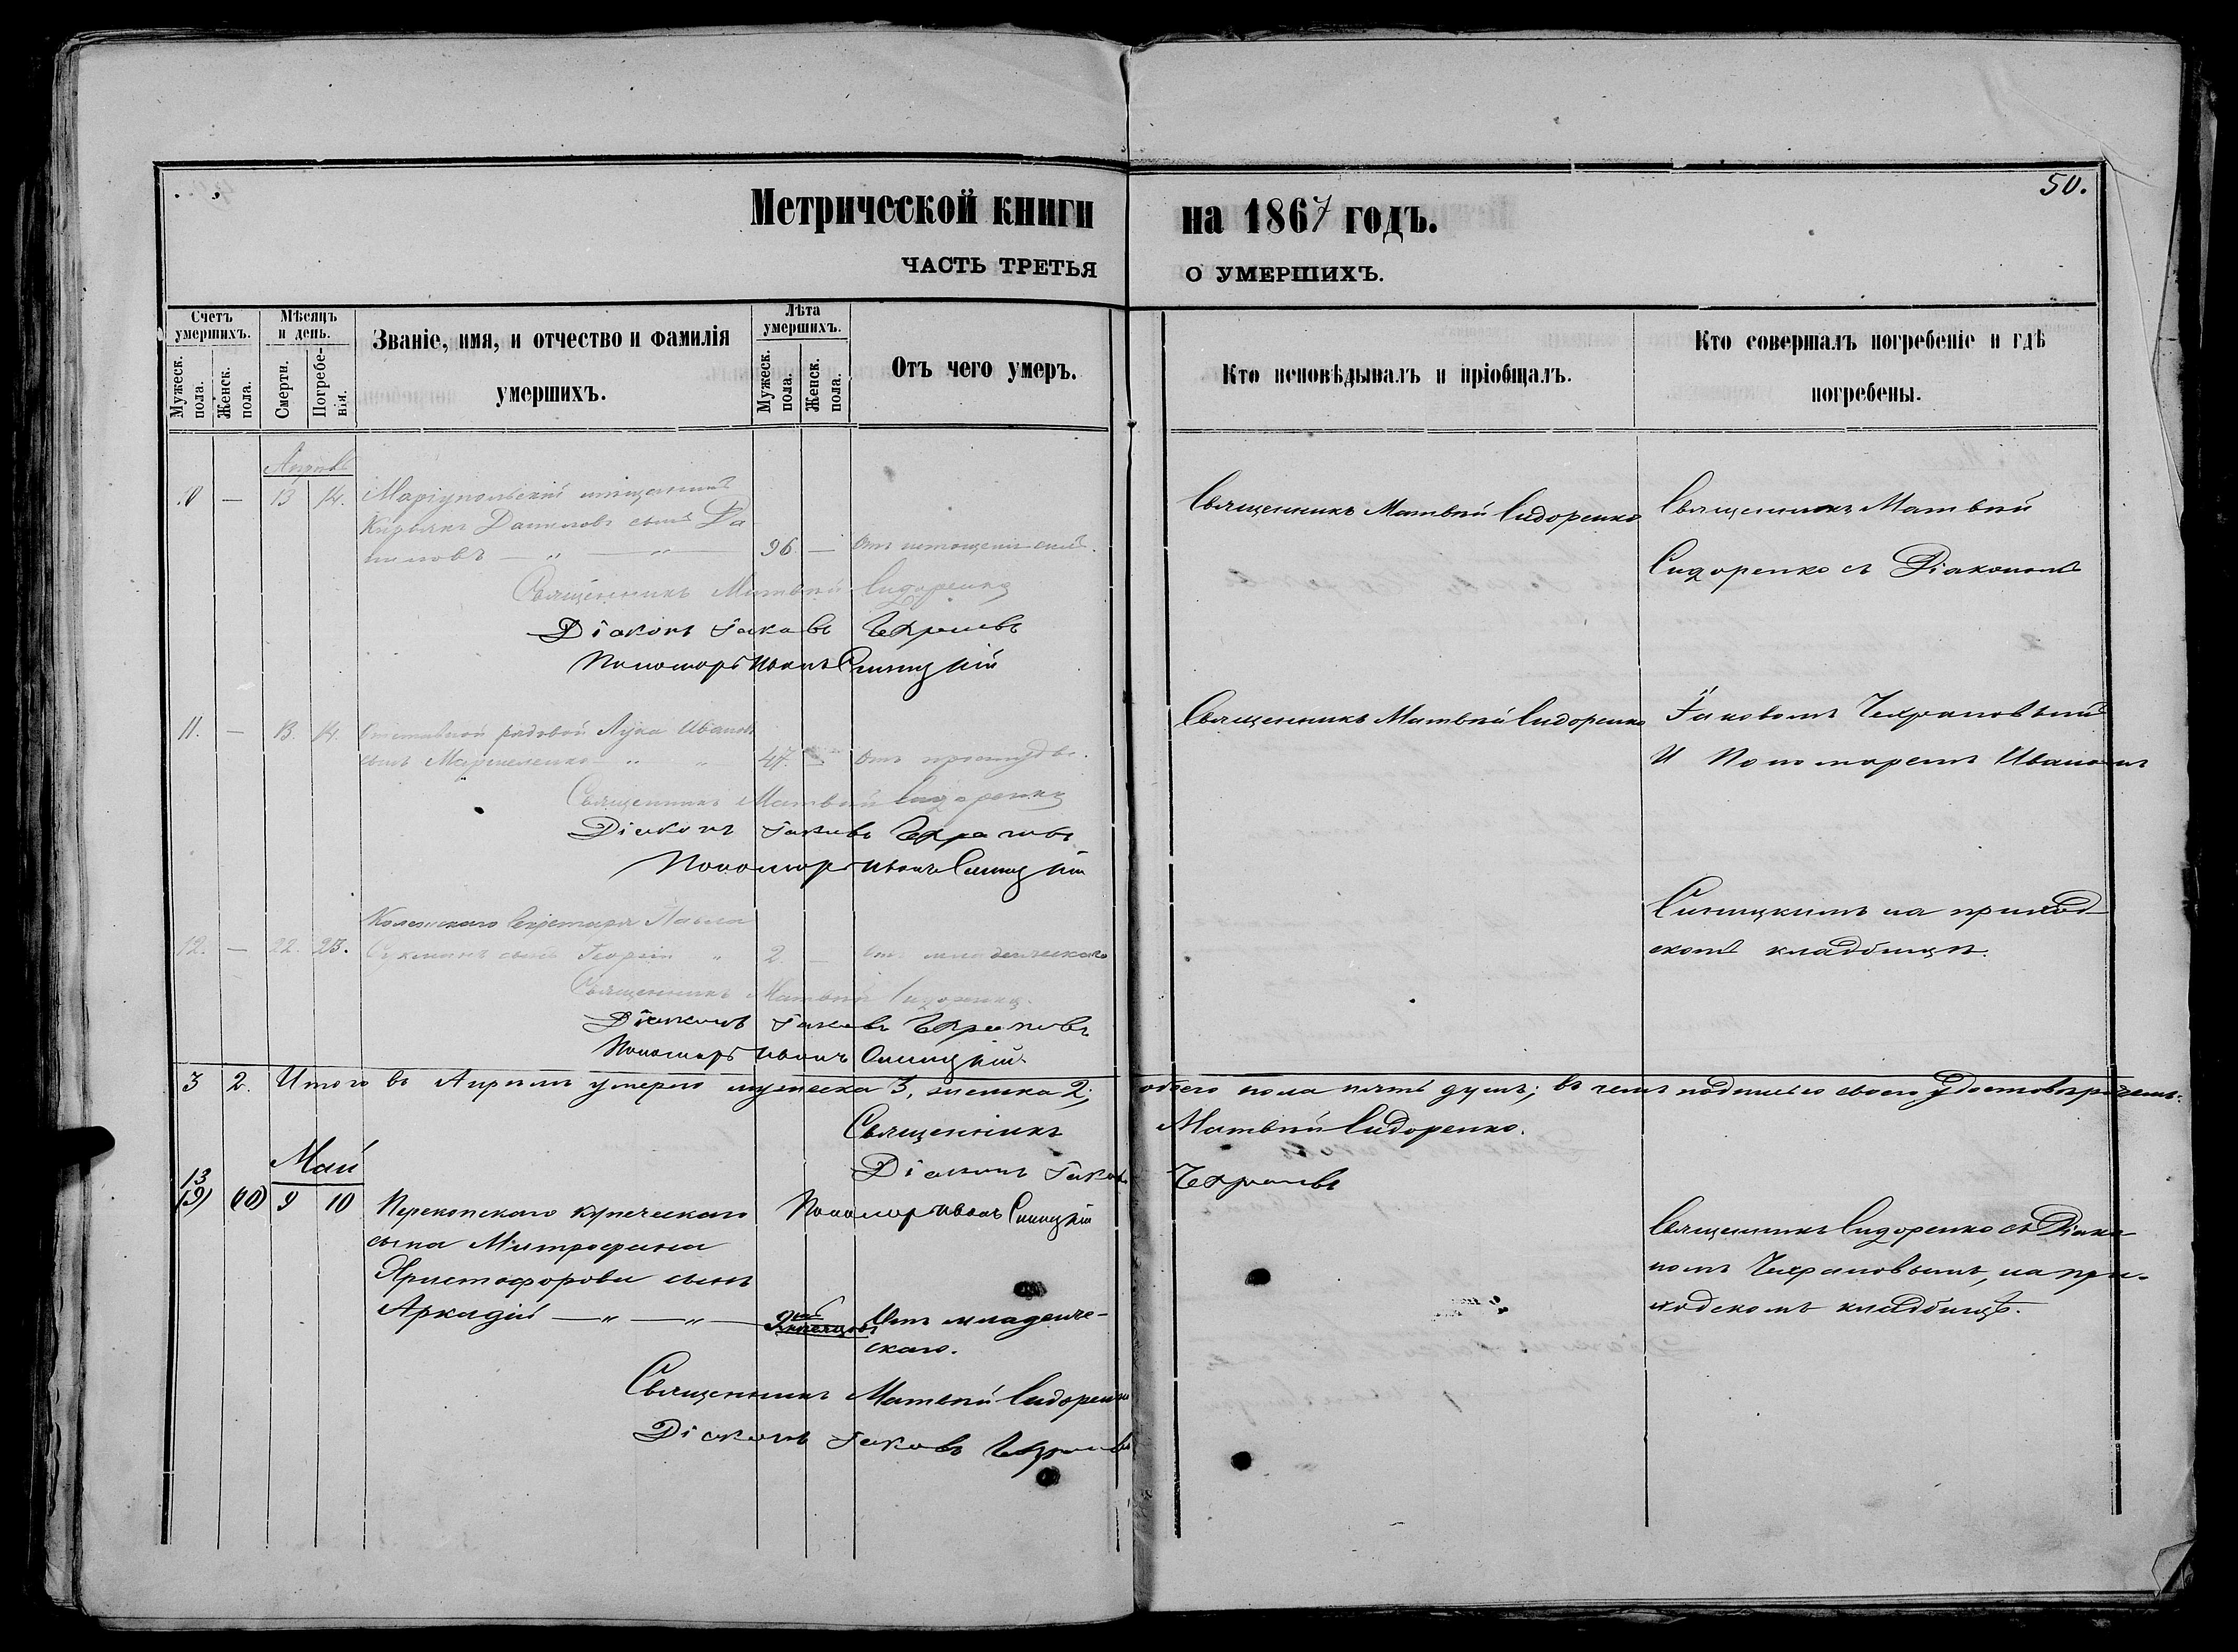 50.
Метрической книги на 1867 годъ.
ЧАСТЬ ТРЕТЬЯ О УМЕРШИХЪ.
Счетъ умершихъ.
Мужеск. пола.
Женск. пола.
Мѣсяцъ и день.
Смерти.
Погребенія.
Званіе, имя, и отчество и фамилія
умершихъ.
Лѣта умершихъ.
Мужеск. пола.
Женск. пола.
Отъ чего умеръ.
Кто исповѣдывалъ и пріобщалъ.
Кто совершалъ погребеніе и гдѣ
погребены.
Апрѣль
10 — 13 14. Маріупольскій мѣщанинъ
Даниловъ сынъ Да
ниловъ — „ — „ — 96. — Отъ истощенія силъ.
Священникъ Матвѣй Сидоренко
Діаконъ Іаковъ
Пономарь Иванъ Синицкій
Священникъ Матвѣй Сидоренко
Священникъ Матвѣй
Сидоренко съ Діакономъ
11. — 13. 14. Отставной рядовой Лука Ивановъ
сынъ „ „ 47. — Отъ простуды.
Священникъ Матвѣй Сидоренко
Діаконъ Іаковъ
Пономарь Иванъ Синицкій
Священникъ Матвѣй Сидоренко
Іаковомъ
И Пономаремъ Иваномъ
Коллежскаго Секретаря Павла
12. — 22. 23. сынъ Георгій „ 2. — Отъ младенческаго
Священникъ Матвѣй Сидоренко.
Діаконъ Іаковъ
Пономарь Иванъ Синицкій
Синицкимъ на приход-
скомъ кладбищѣ.
3 2. Итого въ Апрѣлѣ умерло мужеска 3, женска 2, обоего пола пять душъ; въ чемъ подписью своею удостовѣряемъ:
Священникъ Матвѣй Сидоренко.
Діаконъ Іаковъ
Пономарь Иванъ Синицкій
Май
13
(9) (10) 9 10 Перекопскаго купеческаго
сына Митрофана
Христофорова сынъ
Аркадій — „ — „ — Отъ младенче-
скаго.
Священникъ Матвѣй Сидоренко
Діаконъ Іаковъ
Священникъ Сидоренко съ Діако-
номъ на при-
ходскомъ кладбищѣ.